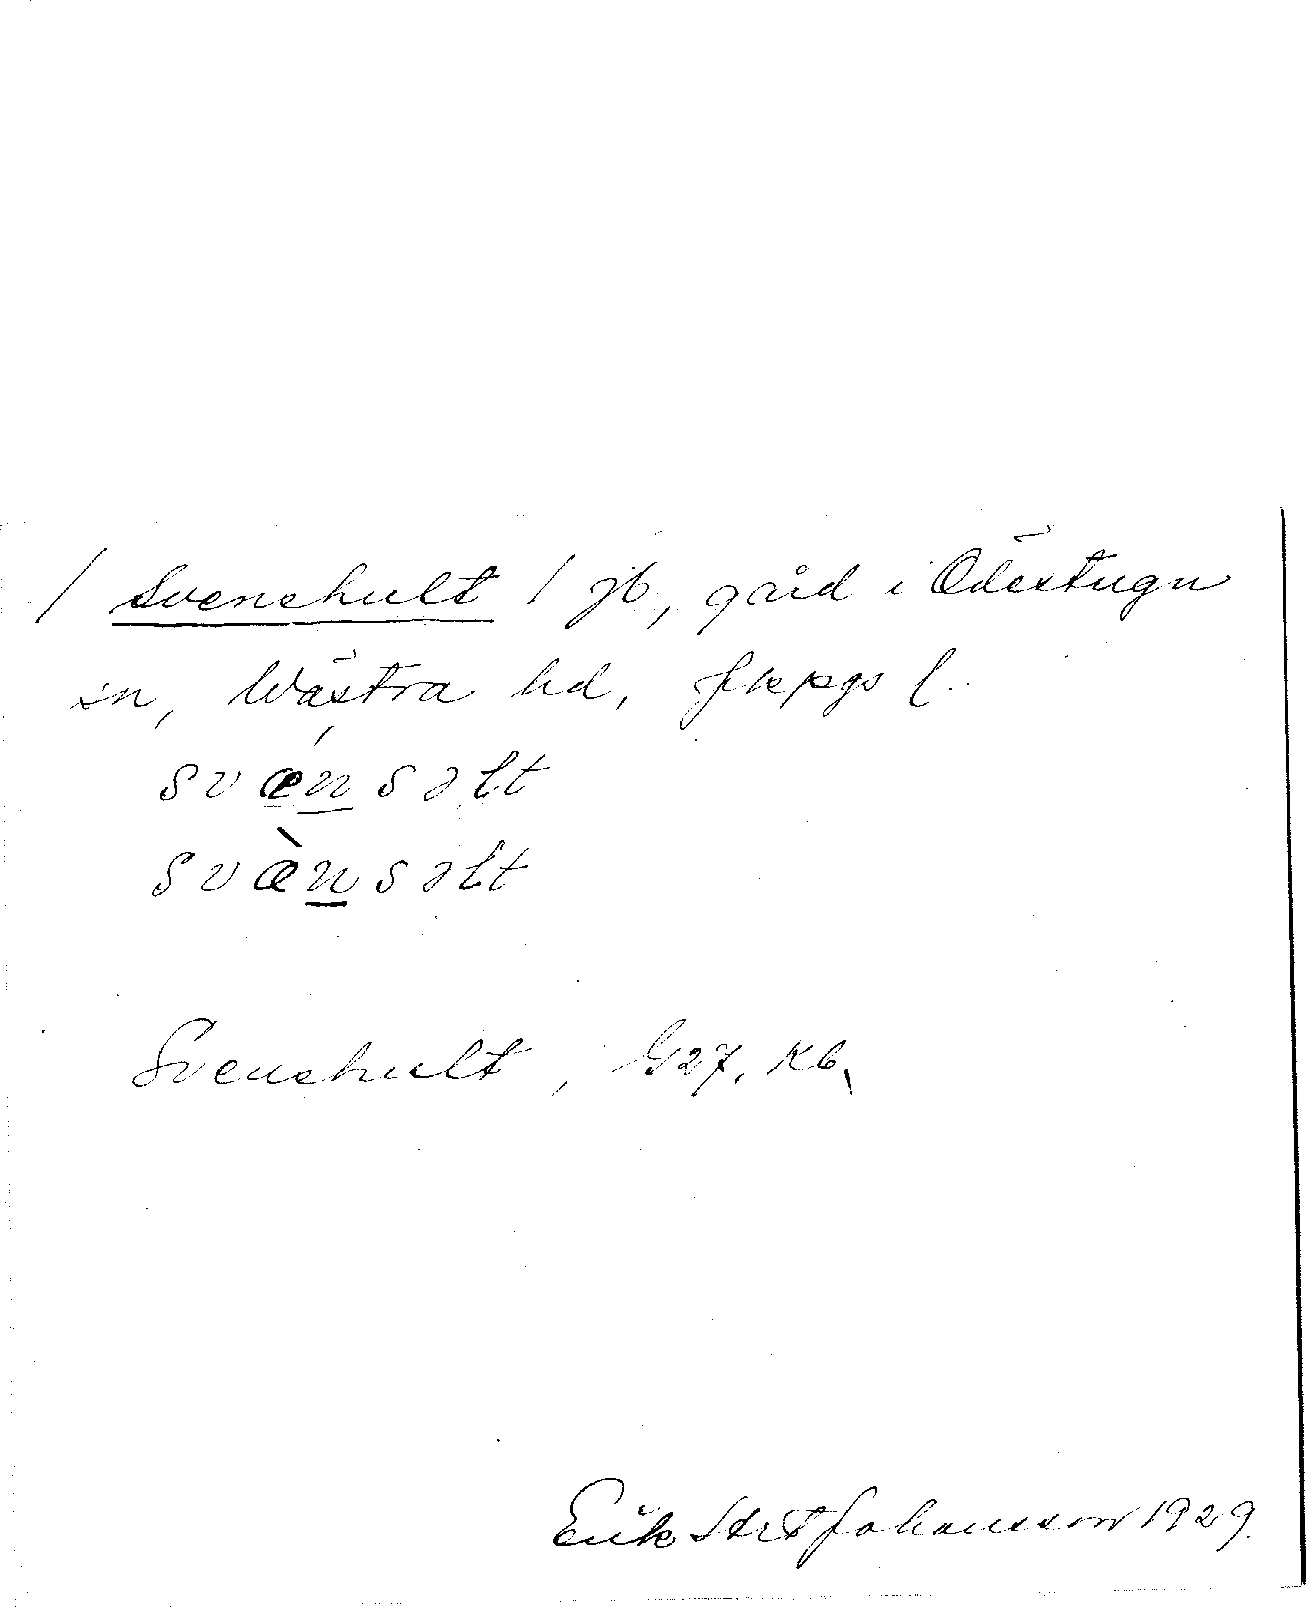 / Svenshult / jb, gård i Ödestugu
sn, Västra hd, Jkpgs l.
svǽnsəlt
svæ̀nsəlt
Svenshult, G27. Kb.
Erik Johansson 1929.